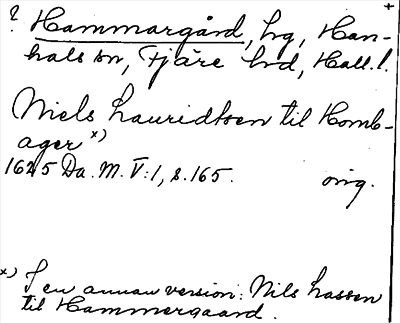 ? Hammargård, hg, Han-
hals sn, Fjäre hd, Hall.l.
Niels Lauridtsen til Homb-
ager x)
1625 Da. M. V:1, s. 165. orig.
x) I en annan version: Nils Lassen
til Hammergaard.